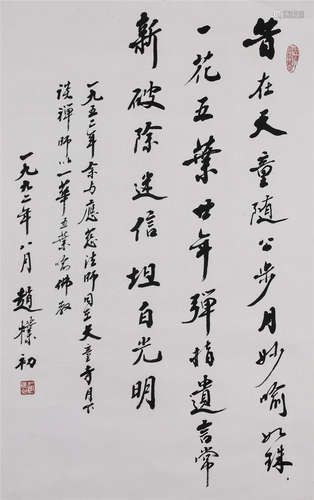 昔在天童随公步月妙喻如珠
一花五葉廿年彈指遺言常
新破除迷信坦白光明
一九五二年余与應慈法師同至天童寺月下
談禅師以一華五葉喻佛教
一九九二年八月趙樸初